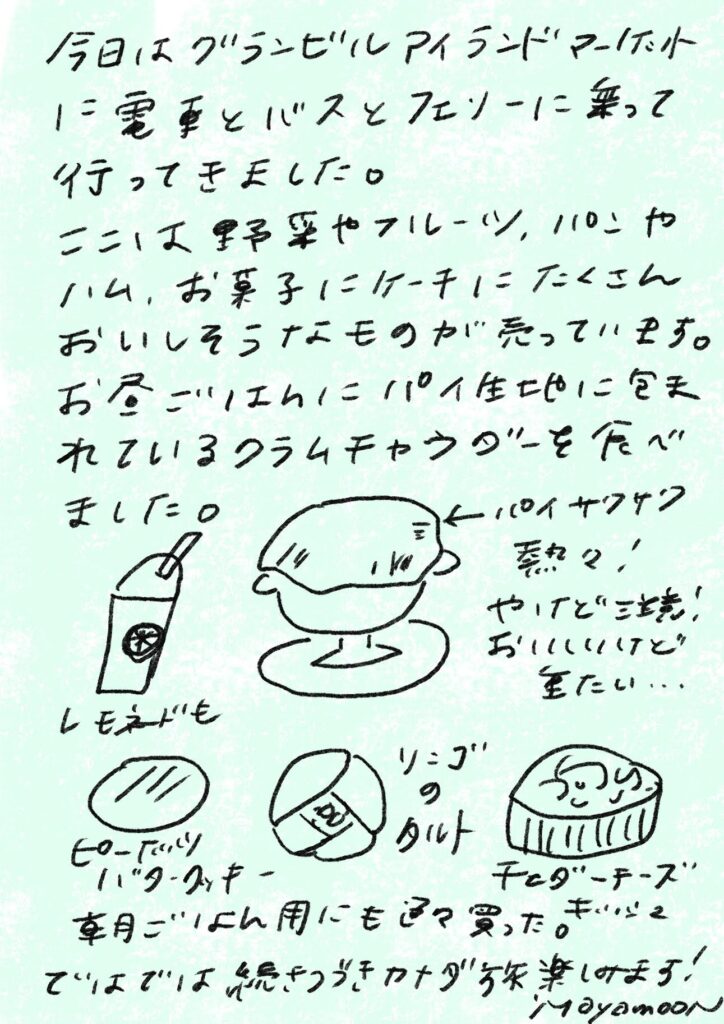 今日はグランビルアイランドマーケット
に電車とバスとフェリーに乗って
行ってきました。
ここは野菜やフルーツ、パンや
ハム、お菓子にケーキにたくさん
おいしそうなものが売っています。
お昼ごはんにパイ生地に包ま
れているクラムチャウダーを食べ
ました。
←パイサクサク
熱々!
やけど注意!
おいしいけど
重たい…
レモネードも
リンゴ
の
タルト
ピーナッツ
バタークッキー
チェダーチーズ
キッシュ
朝ごはん用にも色々買った。
ではでは続きつづきカナダ旅楽しみます!
Mayamoon